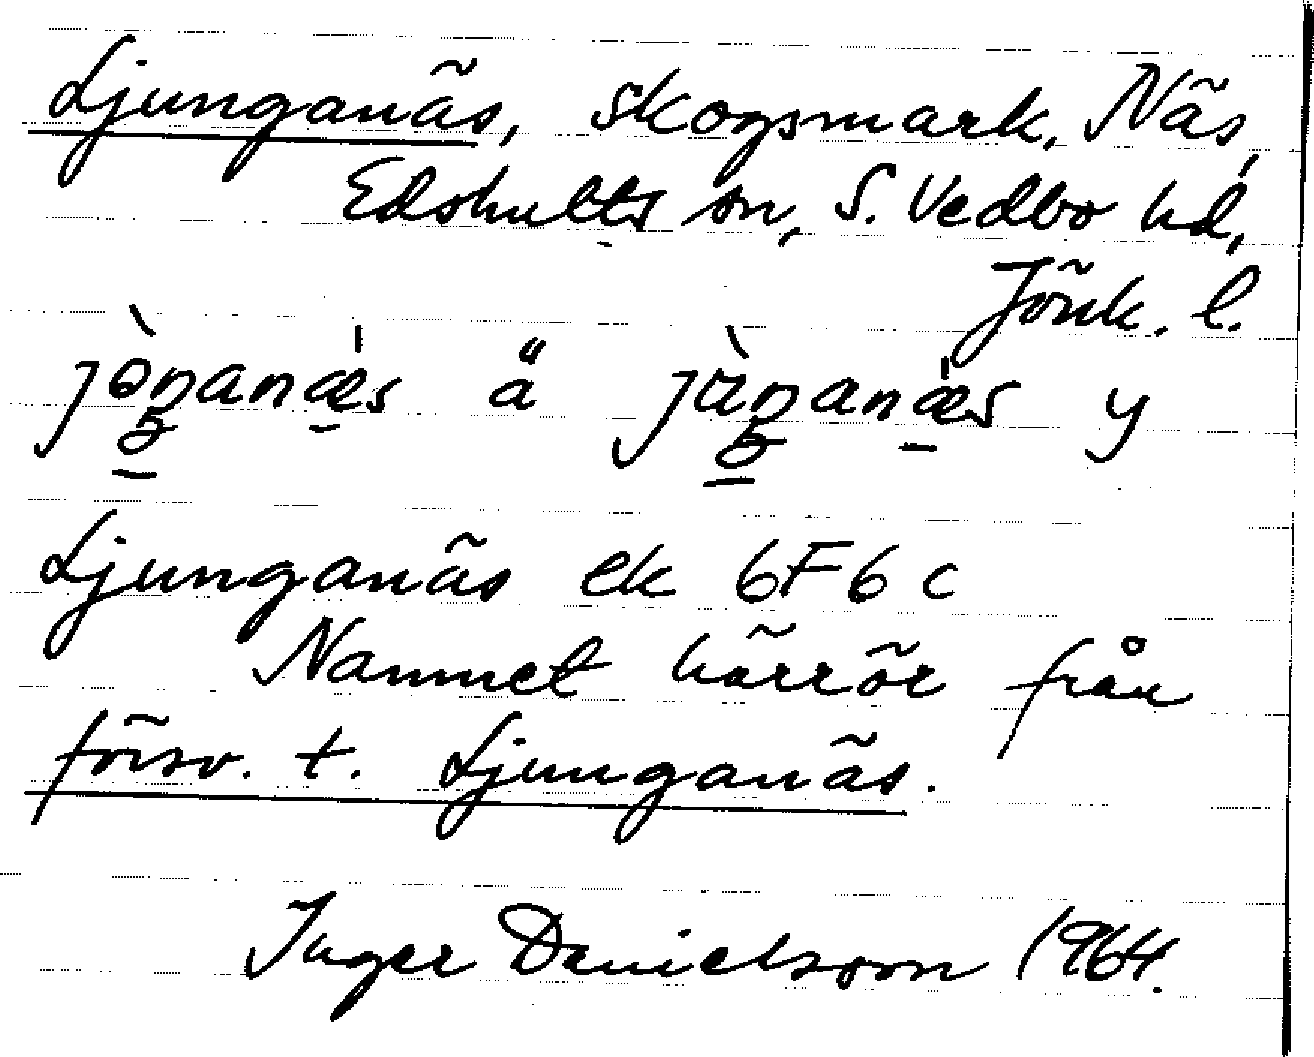 Ljunganäs, skogsmark, Näs,
Edshults sn, S. Vedbo hd,
Jönk. l.
ä y
Ljunganäs ek 6F6c
Namnet härrör från
försv. t. Ljunganäs.
Inger Danielsson 1964.